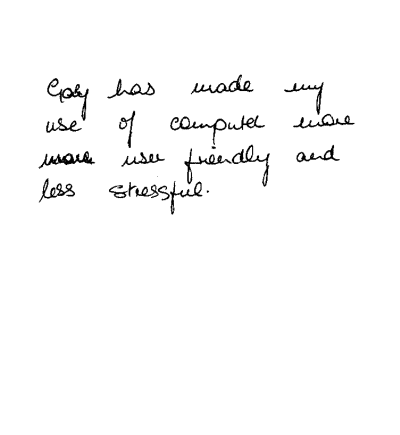 has made my
use of computer more
user friendly and
less stressful.